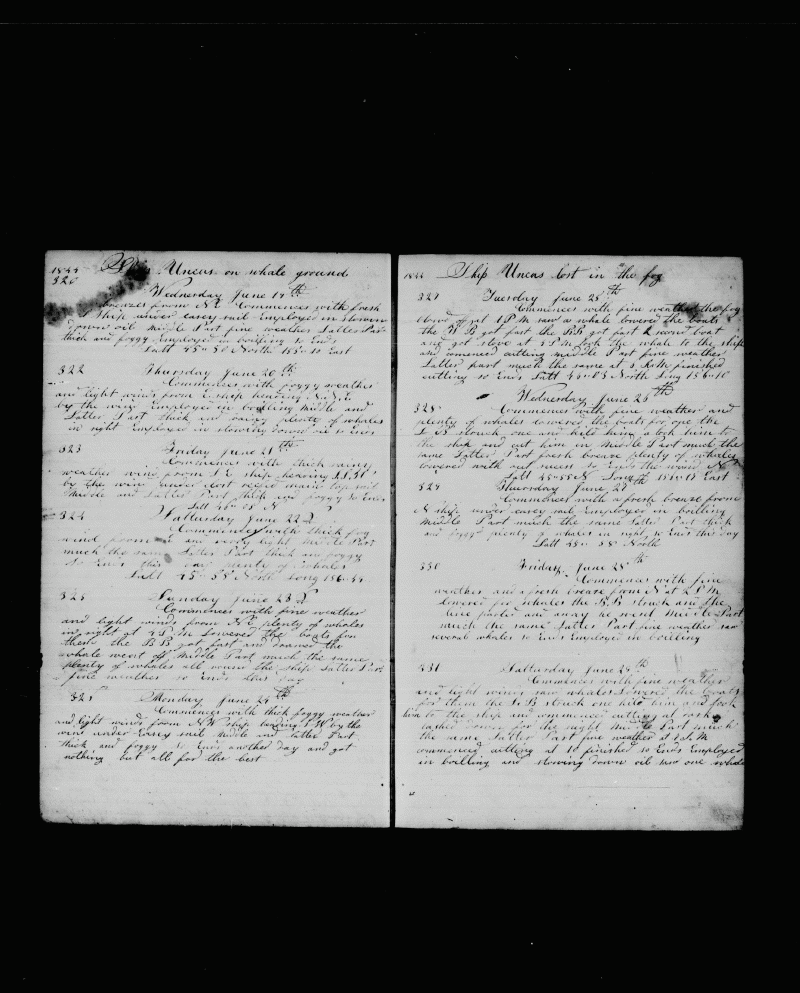 1844 Ship Uncas on whale ground
320
Wednesday June 19th
breezes from N E Commences with fresh
Ship under easey sail Employed in stowin
down oil Middle Part fine weather Latter Par
thick and foggy Employed in boiling so Ends
Latt 45 50 North 155 10 East
322 Thursday June 20th
Commences with foggy weather
and light winds from E ship heading
by the wind Employed in boiling Middle and
Latter Part thick and plenty of whales
in sight Employed in stowing down oil so Ends
323 Friday June 21th
Commences with thick rainy
weather wind from S E ship heading
by the wind under clost reefd main top sail
Middle and Latter Part thick and foggy so Ends
Latt 45 58 N
324 Satturday June 22 D
Commences with thick fog
wind from E and very light Middle Part
much the same Latter Part thick and foggy
so Ends this day plenty of whales
Latt 45 58 North Long 156
325 Sunday June 23 D
Commences with fine weather
and light winds from N E plenty of whales
in sight at P M Lowered the boats for
them the B B got fast and drawed the
whale went off Middle Part much the same
plenty of whales all round the ship Latter Part
fine weather so ends this day
Monday June 24th
Commences with thick foggy weather
and light winds from N W ship heading by the
wind under Easey sail Middle and Latter Part
thick and foggy so Ends another day and got
nothing but all for the best
1844 Ship Uncas lost in the fog
327 Tuesday June 25th
Commences with fine weather the fog
cleard of at 1 P M saw a whale lowered the boats
the W B got fast the B B got fast second boat
and got stove at 5 P M took the whale to the ship
and comenced cutting middle Part fine weather
Latter part much the same at A M finished
cutting so Ends Latt North Long 156 10
Wednesday June 26th
328 Commences with fine weather and
plenty of whales lowered the boats for one the
struck one and kild him took him to
the ship and cut him in Middle Part much the
same Latter Part fresh breeze plenty of whales
lowered with out sucess so Ends the wind N
Latt 45 55 N Long 156 17 East
329 Thursday June 27th
Commences with a fresh breeze from
N ship under easey sail Employed in boiling
Middle Part much the same Latter Part thick
and foggy plenty of whales in sight so Ends the day
Latt 45 58 North
330 Friday June 28th
Commences with fine
weather and a fresh breeze from N at 2 P M
lowered for whales the B B struck and the
line parted and away he went Middle Part
much the same Latter Part fine weather saw
several whales so Ends Employed in boiling
331 Satturday June 29th
Commences with fine weather
and light winds saw whales Lowered the boats
for them the B struck one kild him and took
him to the ship and commenced cutting at dark
down for the night Middle Part much
the same Latter Part fine weather at A M
commenced cutting at 10 finished so Ends Employed
in boiling and stowing down oil saw one whale